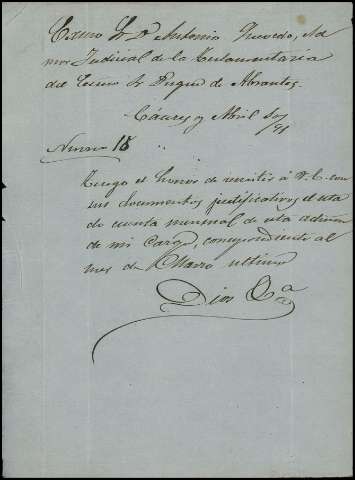 Excmo Sr. D. Antonio Quevedo, Ad
mor Judicial de la Testamentaria
del Excmo Sr Duque de Abrantes.
Cáceres y Abril 10/71
Numero 18
Tengo el honor de remitir á V. E. con
sus documentos justificativos, el esta
do cuenta mensual de esta admon
de mi cargo, correspondiente al
mes de Marzo ultimo
Dios Gª